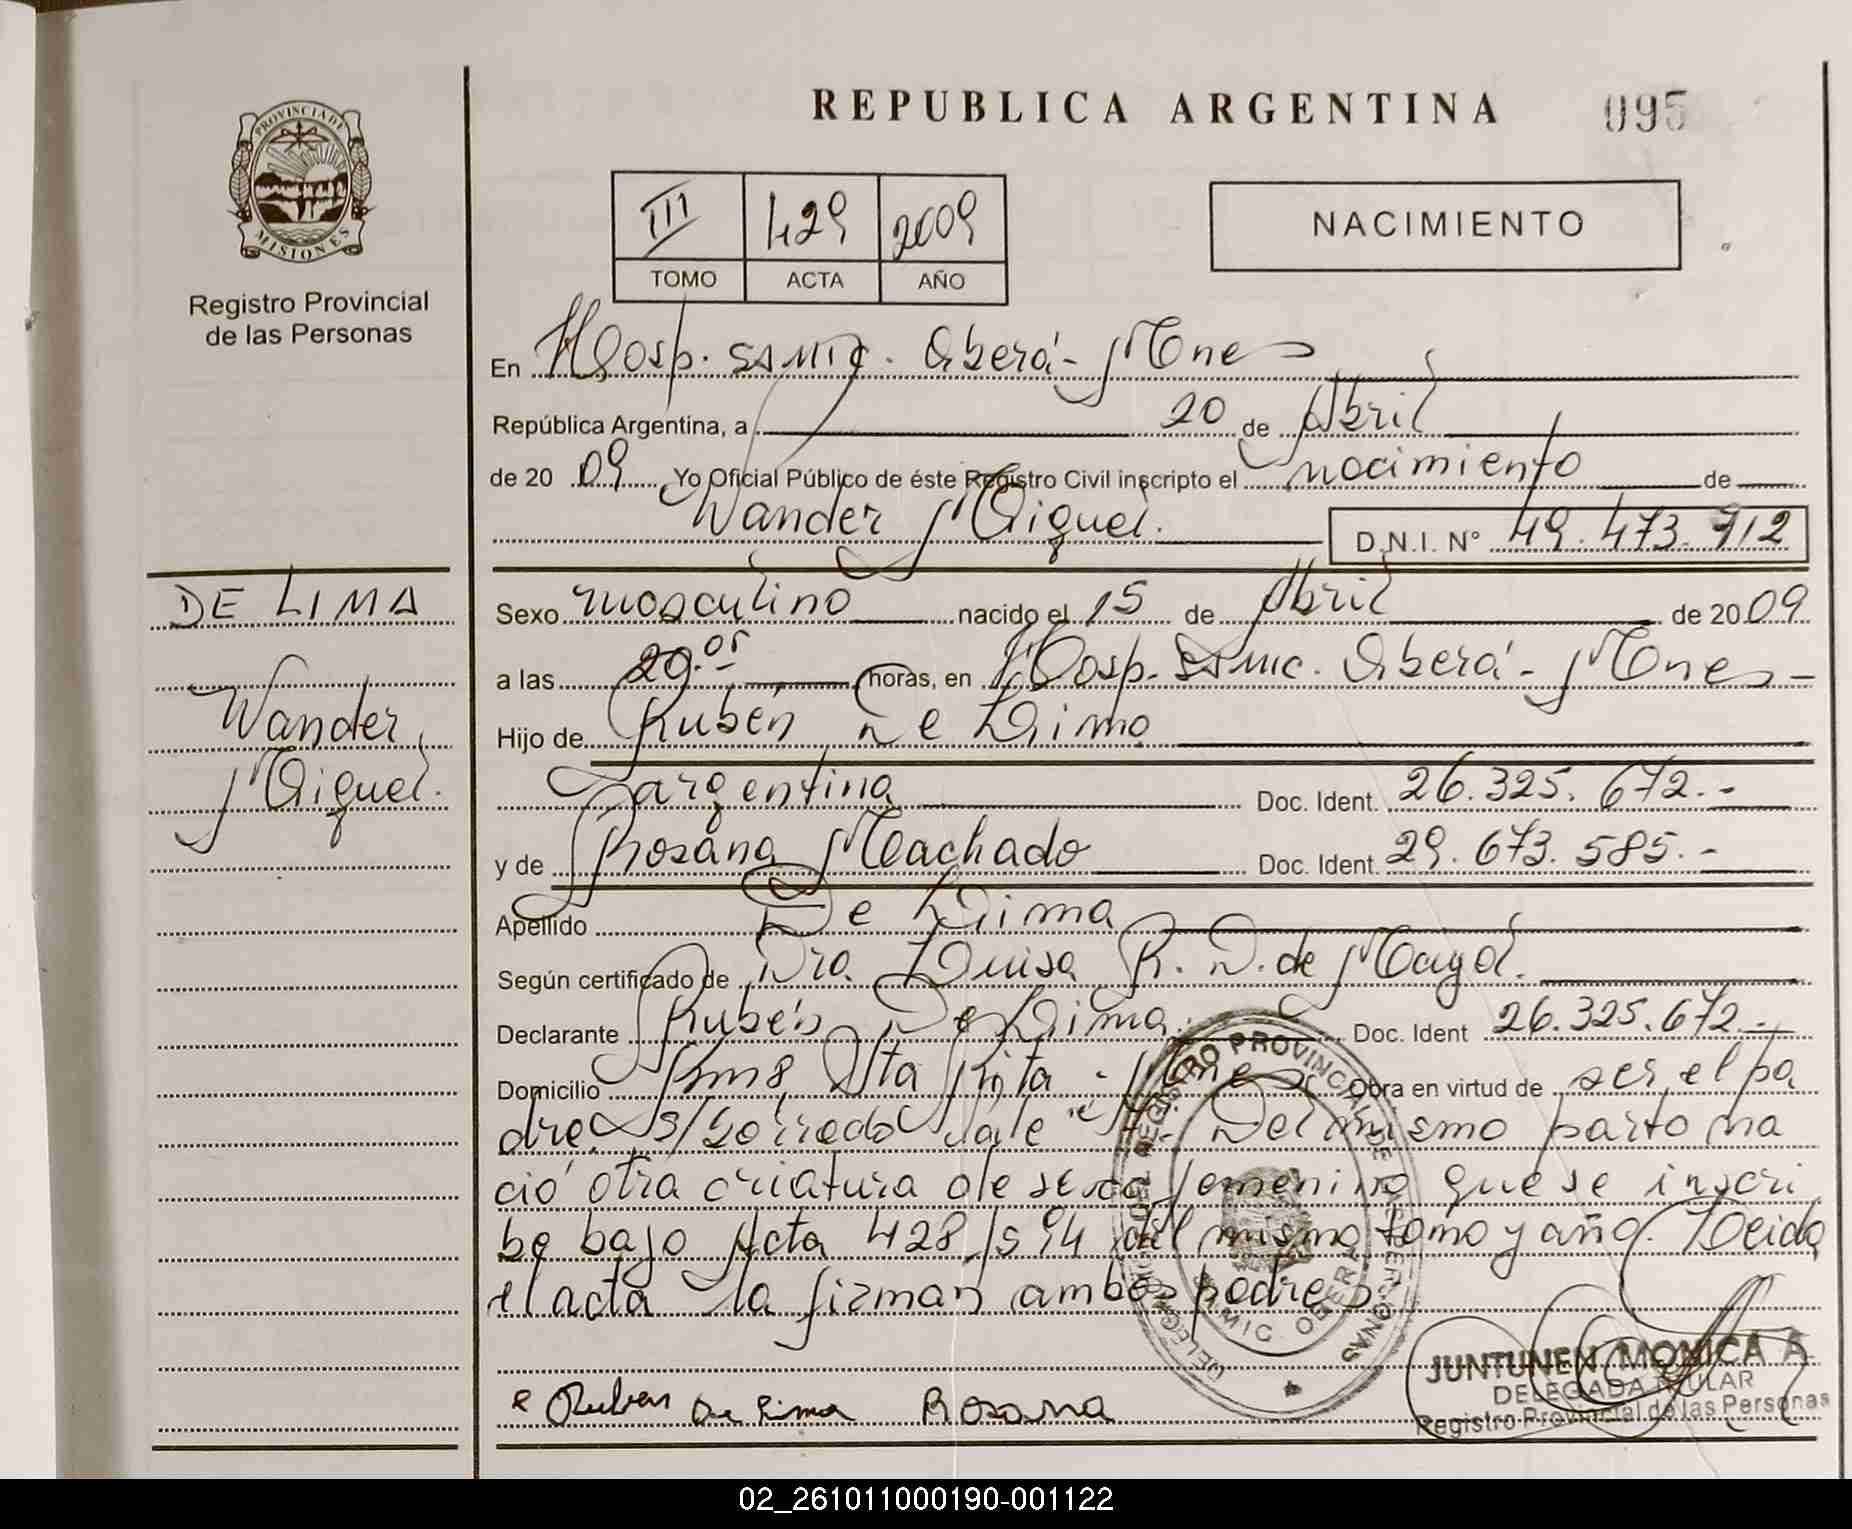 REPUBLICA ARGENTINA
095
PROVINCIA DE
MISIONES
Registro Provincial
de las Personas
III 429 2009
TOMO ACTA AÑO
NACIMIENTO
En Hosp. SAMIC. Oberá - Mnes
República Argentina, a 20 de Abril
de 2009 Yo Oficial Público de éste Registro Civil inscripto el nacimiento de
Wander Miguel. D.N.I. N° 49.473.912
DE LIMA
Wander
Miguel.
Sexo masculino nacido el 15 de Abril de 2009
a las 20.05 horas, en Hosp. SAMIC. Oberá - Mnes -
Hijo de Rubén De Lima
argentina Doc. Ident. 26.325.672.-
y de Rosana Machado Doc. Ident. 29.673.585.-
Apellido De Lima
Según certificado de Dra. Luisa R. D. de Mayol.
Declarante Rubén De Lima. Doc. Ident 26.325.672.-
Domicilio Km 8, Sta Rita - Mnes Obra en virtud de ser el pa
dre S/borrado Vale Del mismo parto na
ció otra criatura de sexo femenino que se inscri
be bajo Acta 428 fs 94 del mismo tomo y año. Leida
el acta la firman ambos padres.
REGISTRO PROVINCIAL DE LAS PERSONAS
SAMIC OBERA
Ruben De Lima Rosana
JUNTUNEN MONICA A
DELEGADA TITULAR
Registro Provincial de las Personas
02_261011000190-001122